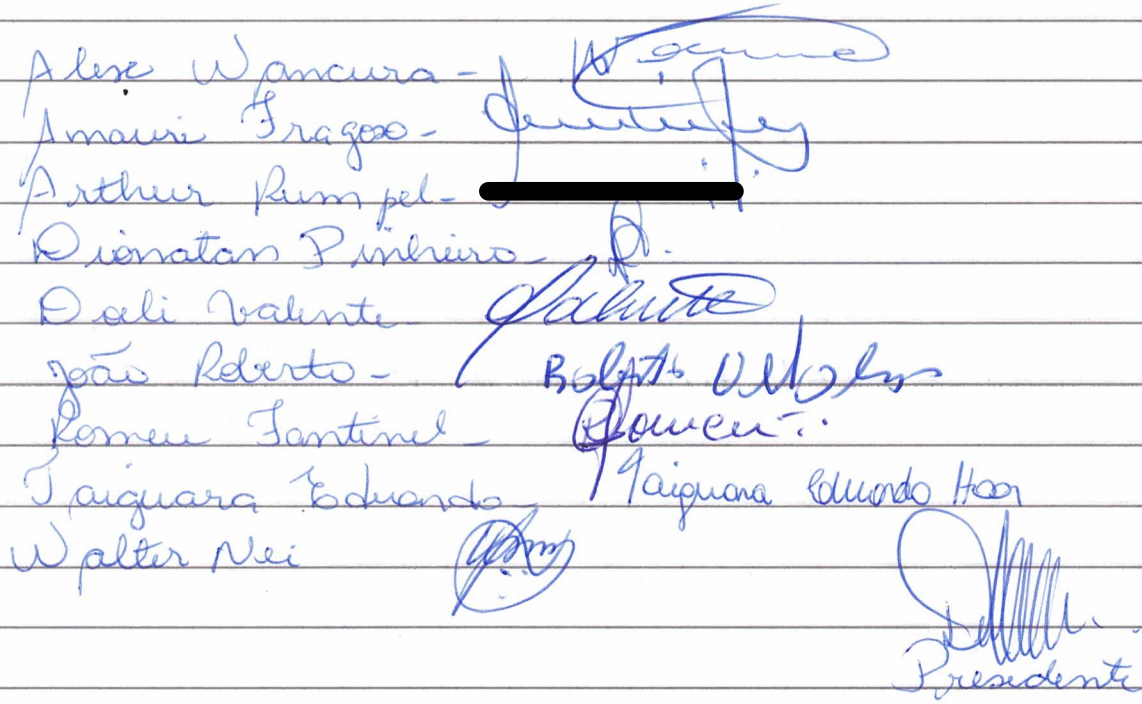 Alex Wancura -
Amauri Fragoso -
Arthur Rumpel -
Dionatan Pinheiro -
Doeli Valente Valente
João Roberto - Roberto
Romeu Fantinel - Romeu
Taiguara Eduardo - Taiguara Eduardo Haar
Walter Nei
Presidente